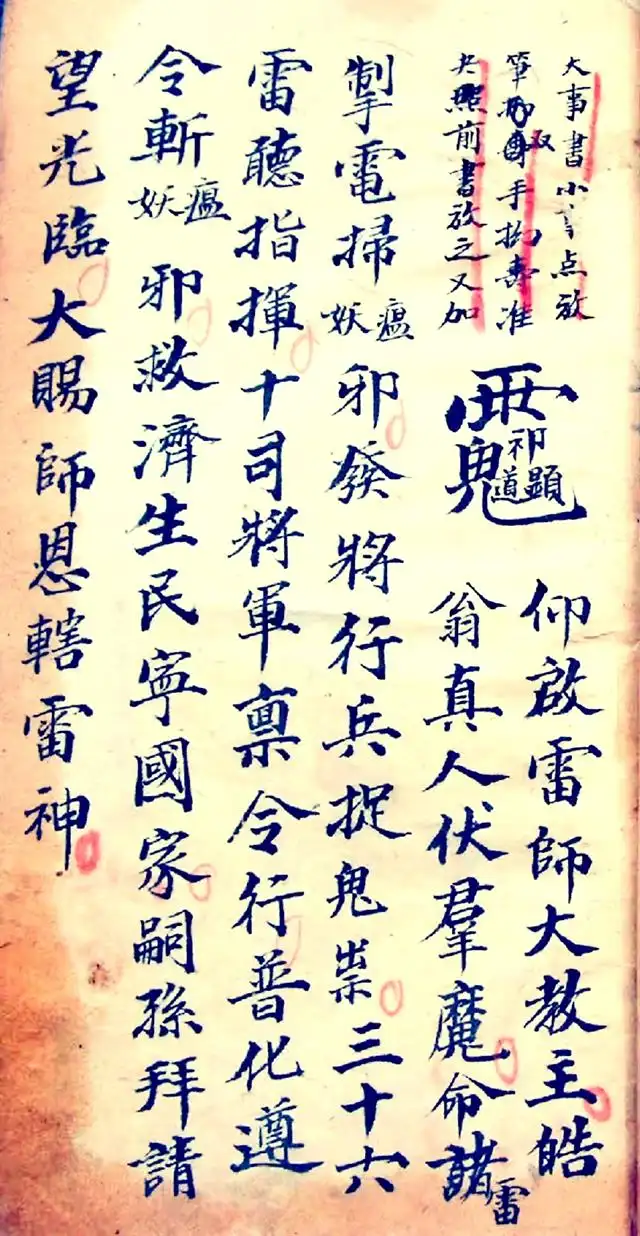 大事書小事点放
筆
手
准
央照前書放之又加
仰啟雷師大教主皓
翁真人伏羣魔命諸雷
掣電掃妖瘟邪發將行兵捉鬼祟三十六
雷聽指揮十司將軍禀令行普化遵
令斬妖瘟邪救濟生民寜國家嗣孫拜請
望光臨大賜師恩轄雷神